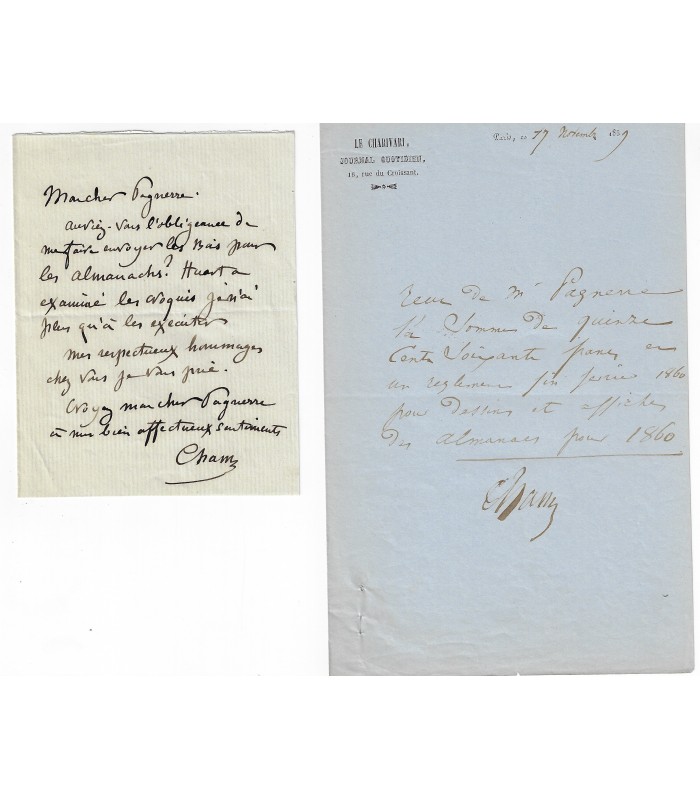 Mon cher Pagnerre.
auriez-vous l'obligeance de
me faire envoyer les Bois pour
les almanachs? Huart a
examiné les croquis je n'ai
plus qu'à les exécuter
mes respectueux hommages
chez vous je vous prie.
Croyez mon cher Pagnerre
à mes bien affectueux sentiments
Cham
LE CHARIVARI,
JOURNAL QUOTIDIEN,
16, rue du Croissant.
Paris, le 17 Novembre 1859
reçu de Mr Pagnerre
la somme de quinze
cents soixante francs en
un reglement fin fevrier 1860
pour dessins et affiches
des almanacs pour 1860
Cham